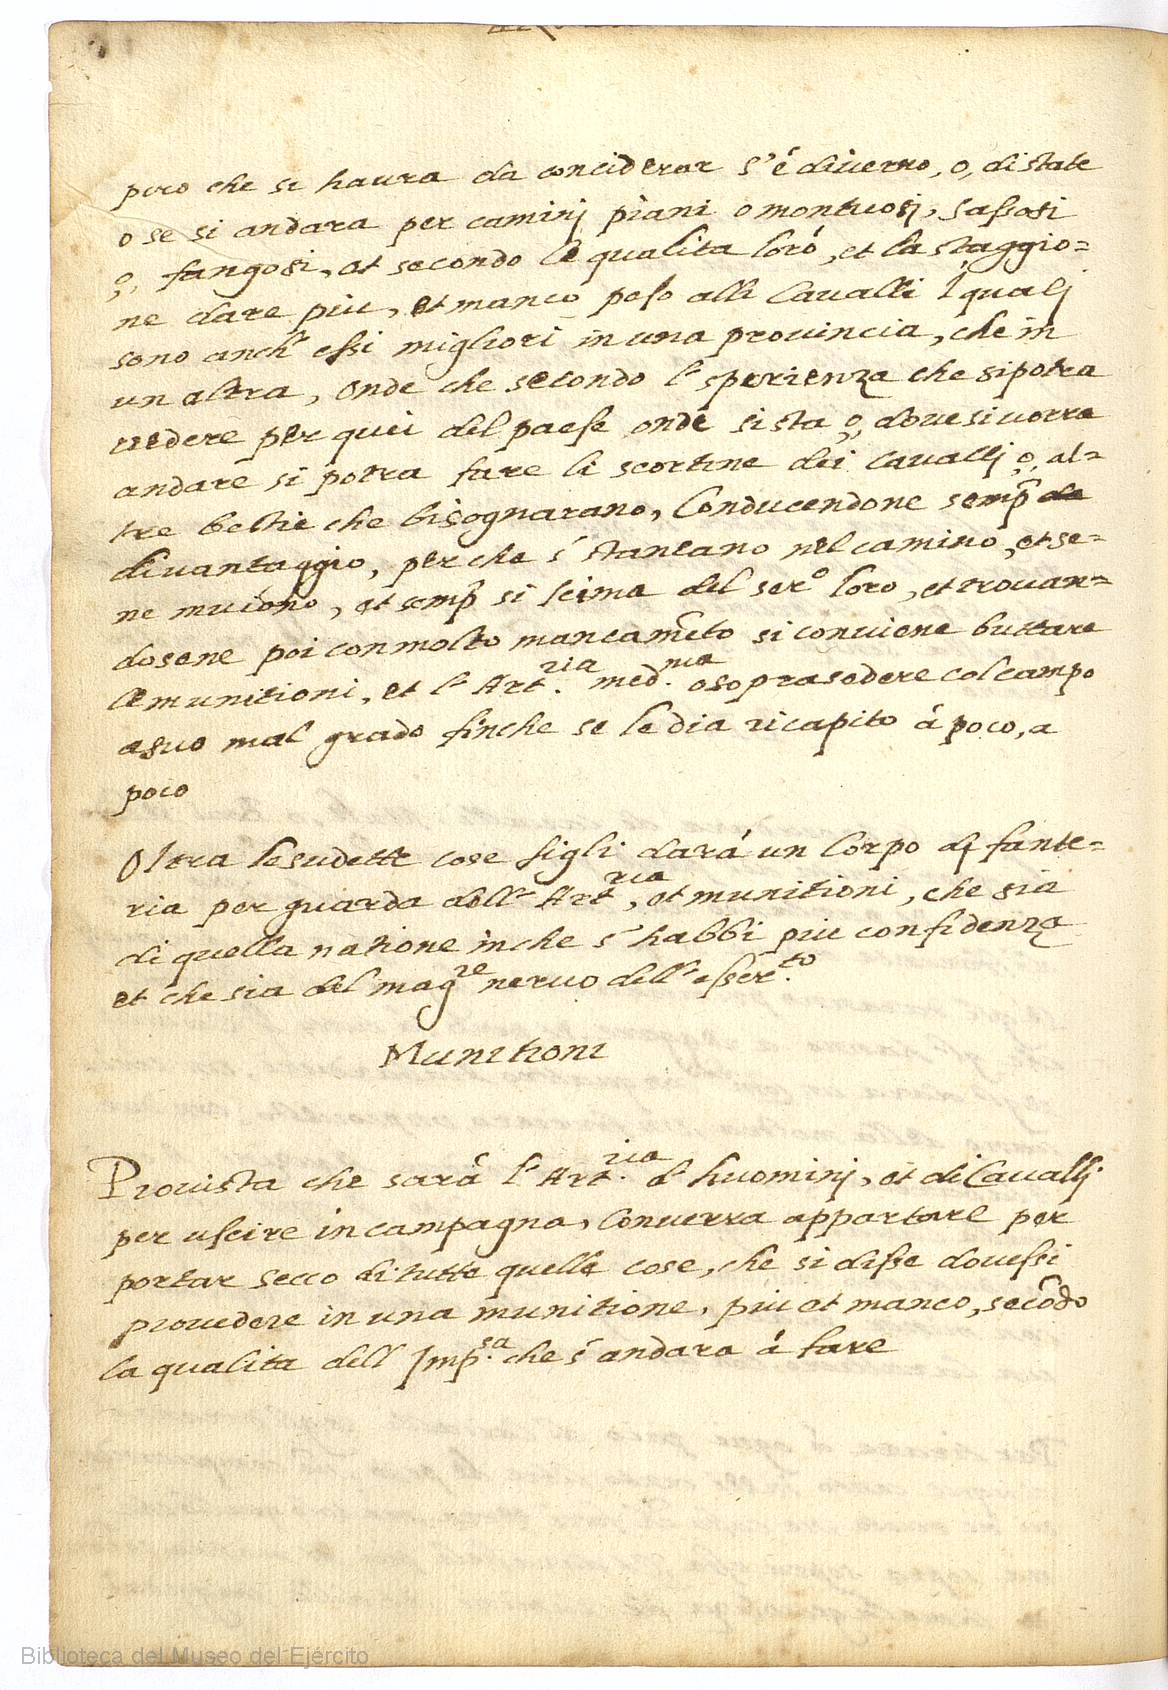 pero che si haura da conciderar s'é diverno, o, distate
o se si andara per caminj piani o montuosj, sassosi
o, fangosi, et secondo le qualita loró, et la staggio=
ne dare più, et manco peso alli Cavalli l'qualj
sono anch' essi migliori in una provincia, che in
un altra, onde che secondo l'sperienza che sipotra
vedere per quei del paese onde si sta o, dovesivorra
andare si potra fare le scortine dei Cavallj o, al=
tre bestie che bisognarano, Conducendone semp
divantaggio, perche s' stancano nel camino, et se=
ne muiono, et semp si scima del ser.o loro, et trovan=
dosene poi conmolto mancamēto si conviene buttare
le munitioni, et l'Art.ria med.ma o soprasedere colcampo
asuo mal grado finche se le dia ricapito á poco, a
poco
Oltra lesudette cose sigli dará un Corpo dj fante=
ria per guarda dell' Art.ria, et munitioni, che sia
di quella natione inche s' habbi piu confidenza
et che sia del mag.re nervo dell' esser.to
Munitioni
Provista che sará l'Art.ria d' huominj, et di Cavallj
per uscire in campagna, Converra appartare per
portar secco di tutte quelle cose, che si disse dovessi
provedere in una munitione, piu et manco, secōdo
la qualita dell Imp.sa che s' andara á fare
Biblioteca del Museo del Ejército